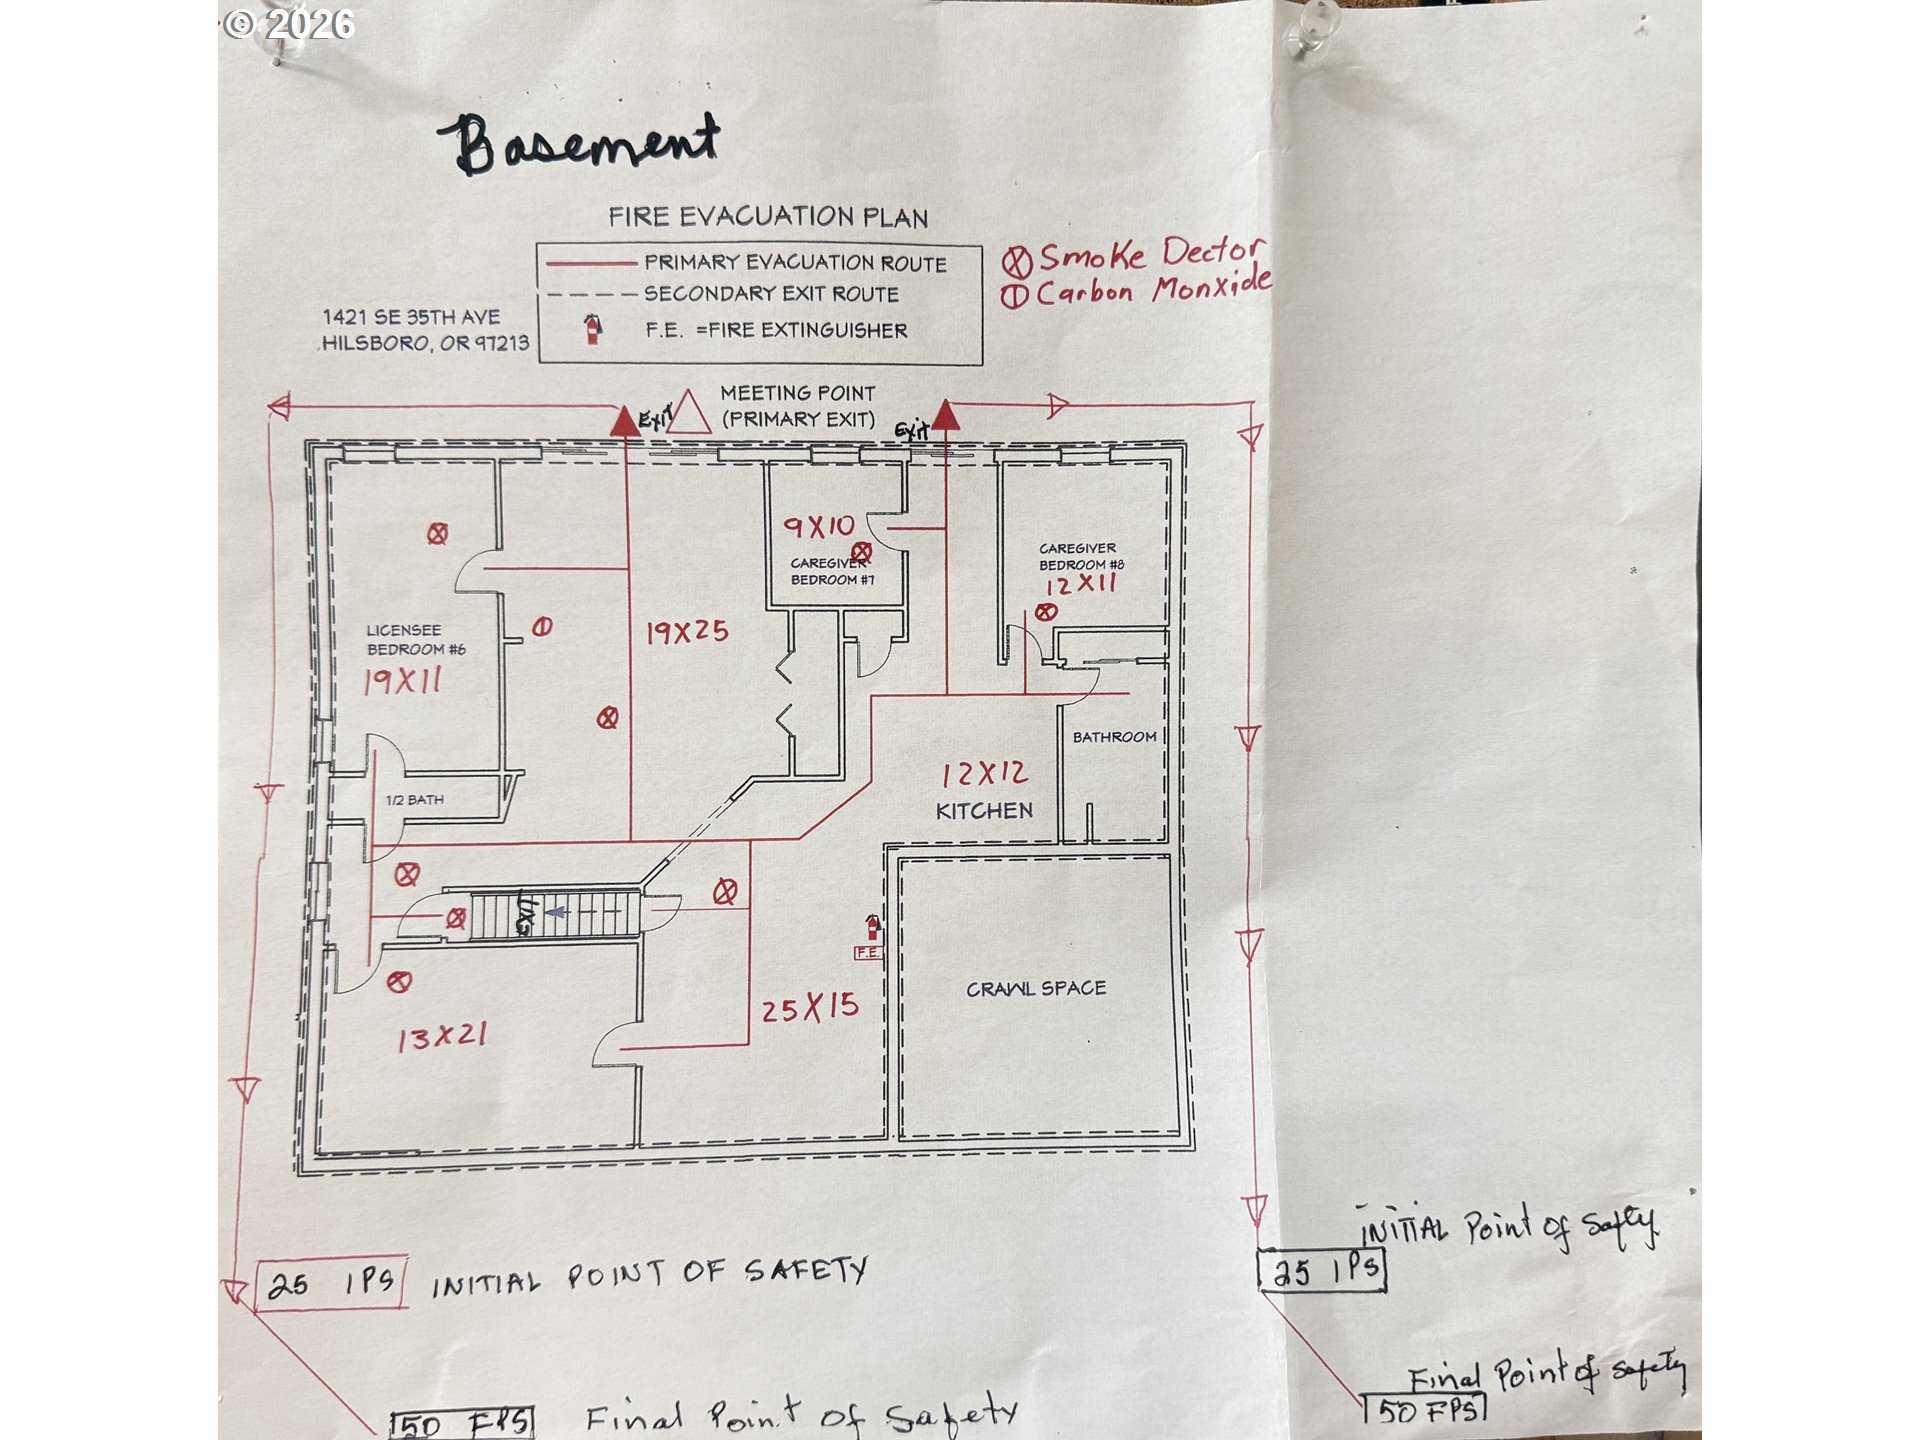 © 2026
Basement
FIRE EVACUATION PLAN
PRIMARY EVACUATION ROUTE
SECONDARY EXIT ROUTE
F.E. =FIRE EXTINGUISHER
Smoke Dector
Carbon Monxide
1421 SE 35TH AVE
HILSBORO, OR 97213
MEETING POINT
(PRIMARY EXIT)
Exit
Exit
9X10
CAREGIVER
BEDROOM #7
CAREGIVER
BEDROOM #8
12X11
LICENSEE
BEDROOM #6
19X11
19X25
BATHROOM
12X12
KITCHEN
1/2 BATH
F.E.
25X15
CRAWL SPACE
13X21
INITIAL Point of Safty
25 IPS
25 IPS INITIAL POINT OF SAFETY
Final Point of Safety
50 FPS
50 FPS Final Point Of Safety